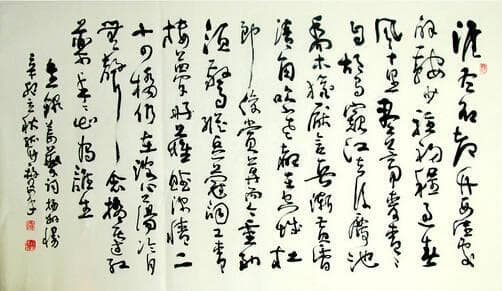 淮左名都竹西佳處
解鞍少駐初程過春
風十里盡薺麥青青
自胡馬窺江去後廢池
喬木猶厭言兵漸黃昏
清角吹寒都在空城杜
郎俊賞算而今重到
須驚縱豆蔻詞工青
樓夢好難賦深情二
十四橋仍在波心蕩冷月
無聲念橋邊紅
藥年年知為誰生
姜夔詞揚州慢